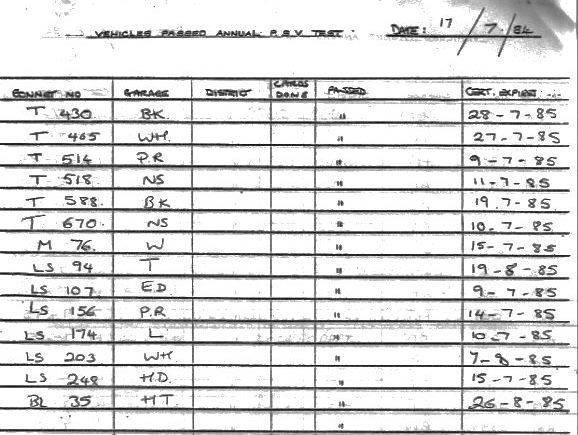 VEHICLES PASSED ANNUAL P.S.V. TEST DATE: 17/7/84
BONNET NO GARAGE DISTRICT CARDS DONE PASSED CERT. EXPIRES
T 430 BK. " 28-7-85
T 465 WH. " 27-7-85
T 514 P.R " 9-7-85
T 518 NS " 11-7-85
T 588 BK " 19.7-85
T 670 NS " 10.7-85
M 76. W " 15-7-85
LS 94 T " 19-8-85
LS 107 E.D " 9-7-85
LS 156 P.R " 14-7-85
LS 174 L " 10.7-85
LS 203 WH " 7-8-85
LS 248 H.D. " 15-7-85
BL 35 HT " 26-8-85
"